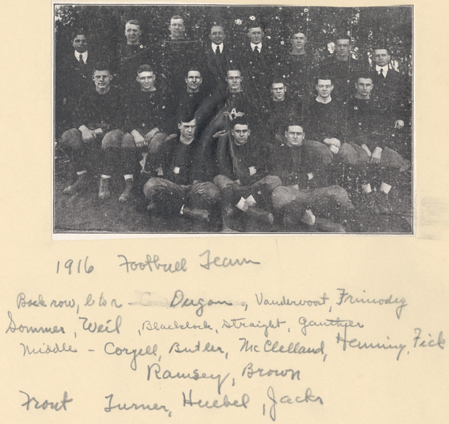 1916 Football Team
Back row, l to r - Dugan, Vandervoort, Frimodig
Sommer, Weil, Blacklock, Straight, Gauthier
Middle - Coryell, Butler, McClelland, Henning, Fick
Ramsey, Brown
Front Turner, Huebel, Jacks